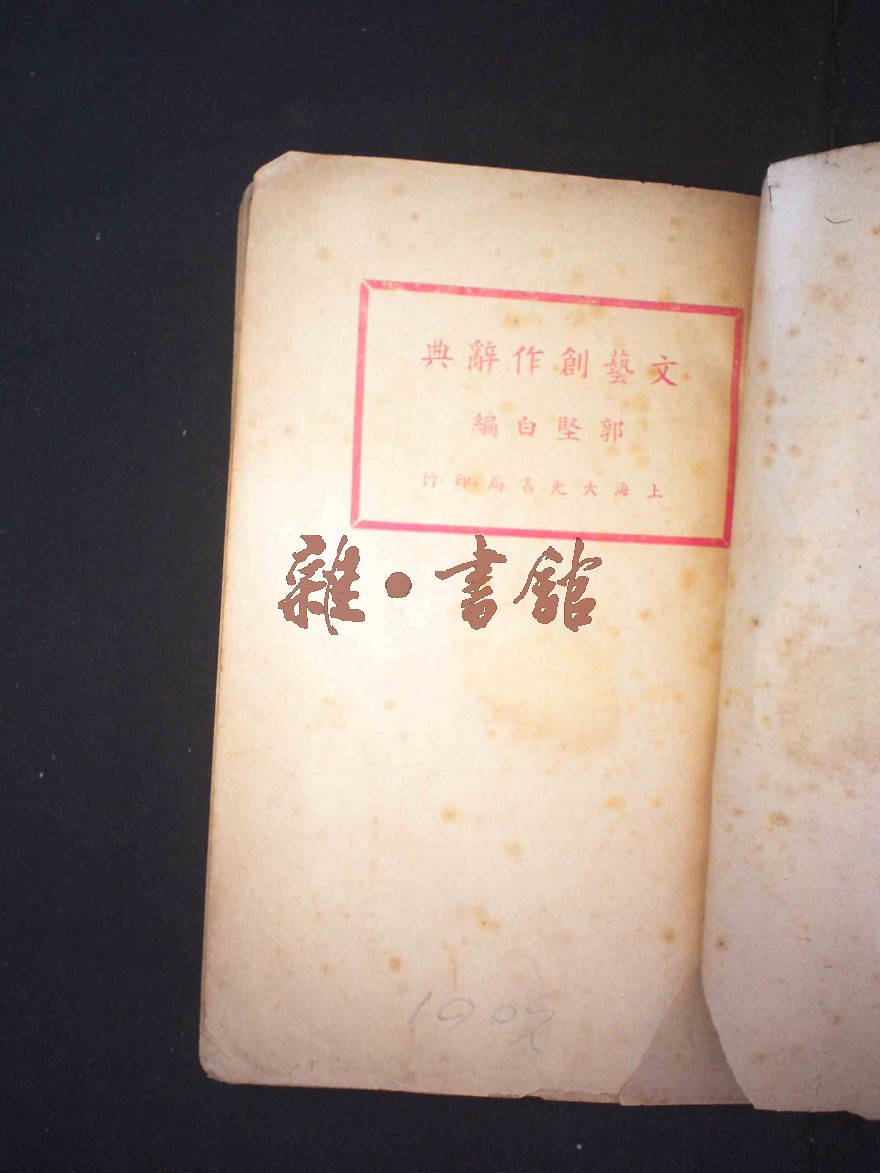 文藝創作辭典
郭堅白編
上海大光書局印行
雜·書館